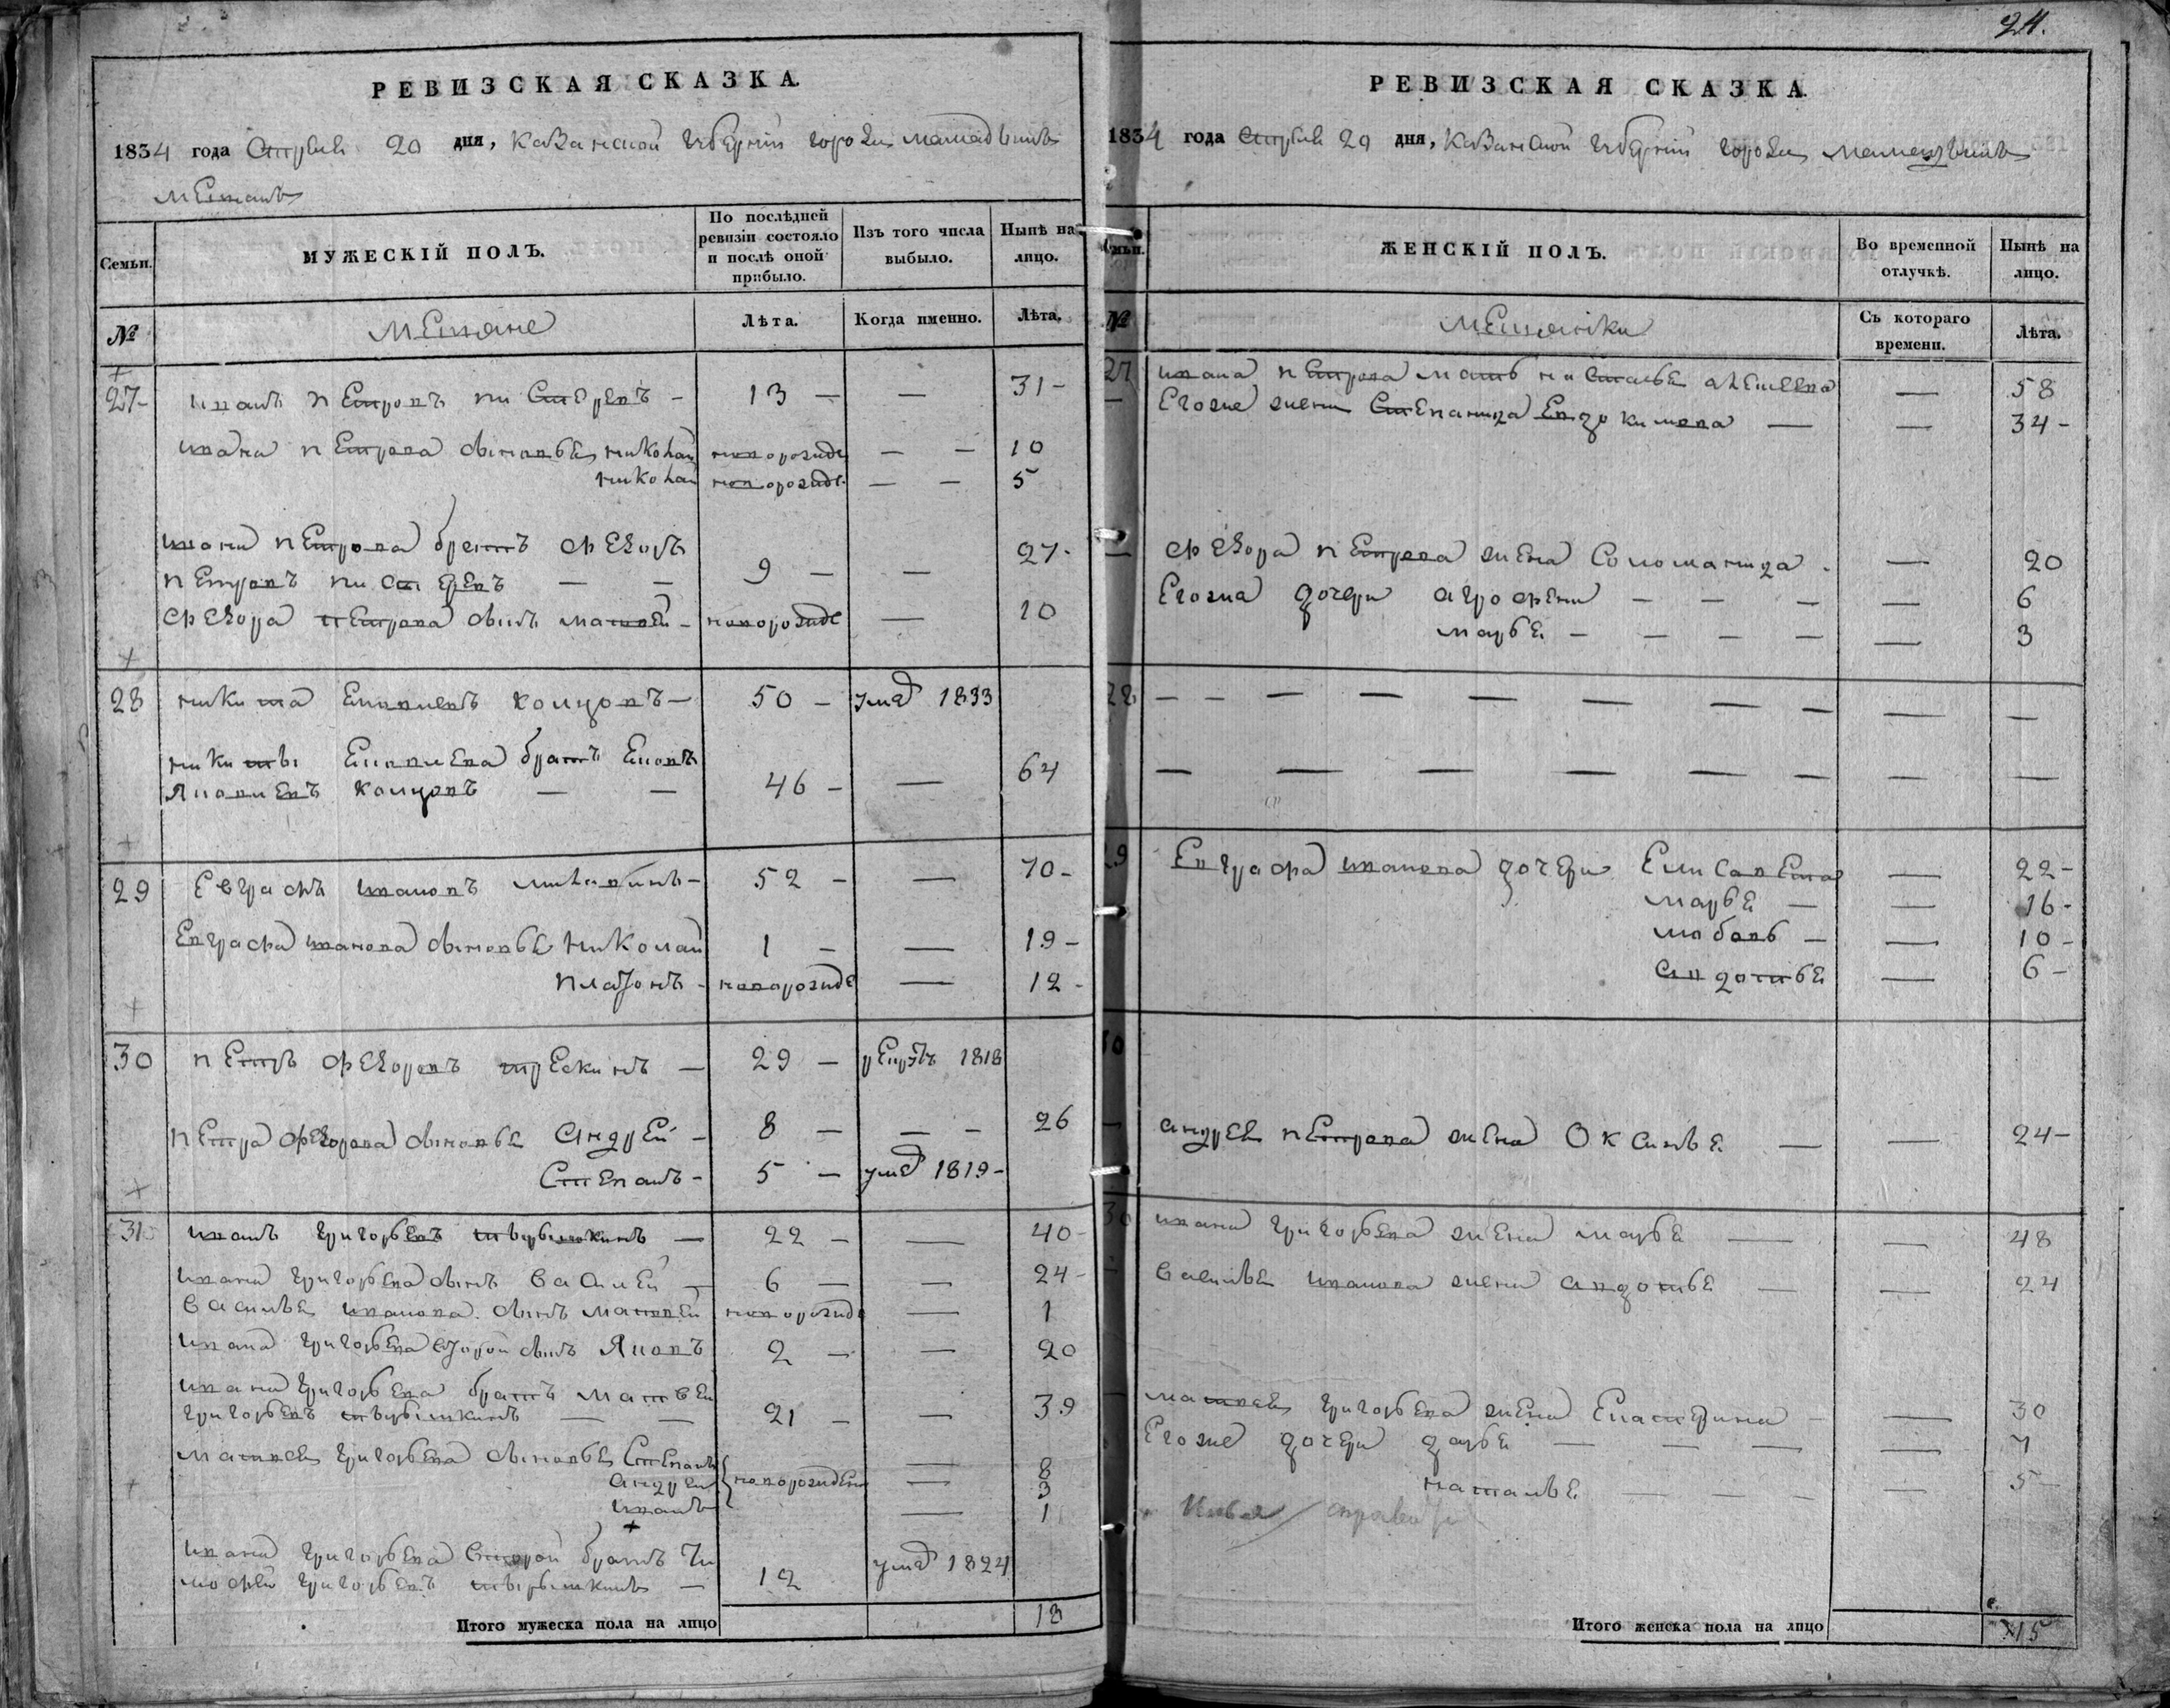 РЕВИЗСКАЯ СКАЗКА
1834 года Апреля 20 дня, Казанской губернии города мамадыша
мещанъ
Семьи.
МУЖЕСКІЙ ПОЛЪ.
По послѣдней ревизіи состояло и послѣ оной прибыло.
Изъ того числа выбыло.
Нынѣ на лицо.
№
мещане
Лѣта.
Когда именно.
Лѣта.
27 иванъ петровъ — 13 — — 31 —
ивана петрова сыновья николай новорожде — — 10
николай новорожде — — 5
ивана петрова братъ федоръ
петровъ — — 9 — — 27
федора петрова сынъ матвей — новорожде — 10
28 никита — 50 — умеръ 1833
никиты братъ
— — 46 — — 64
29 Евграфъ ивановъ — 52 — — 70 —
Евграфа иванова сыновья николай 1 — — 19 —
платонъ — новорожде — 12 —
30 петръ федоровъ трескинъ — 29 — 1818
петра федорова сыновья андрей — 8 — — — 26
степанъ — 5 — умеръ 1819 —
31 иванъ григорьевъ — 22 — — 40 —
ивана григорьева сынъ василей — 6 — — 24 —
василья иванова сынъ матвей новорожде — 1
ивана григорьева второй сынъ яковъ 2 — — 20
ивана григорьева братъ матвей
григорьевъ — — 21 — — 39
матвея григорьева сыновья степанъ — 8
андрей новорожден — 3
иванъ — 1
ивана григорьева второй братъ ти
мофей григорьевъ — 12 умеръ 1824
Итого мужеска пола на лицо 18
24.
РЕВИЗСКАЯ СКАЗКА
1834 года Апреля 20 дня, Казанской губернии города мамадыша
Семьи.
ЖЕНСКІЙ ПОЛЪ.
Во временной отлучкѣ.
Нынѣ на лицо.
№
мещанки
Съ котораго времени.
Лѣта.
27 ивана петрова мать наталья алексеева — 58
Егоже жена степанида Евдокимова — — 34 —
федора петрова жена соломанида — — 20
Егоже дочери аграфена — — — — 6
марья — — — — — 3
28 — — — — — — — — —
— — — — — — — —
29 Евграфа иванова дочери Елисавета — 22 —
марья — — 16 —
любовь — — 10 —
авдотья — 6 —
30
андрея петрова жена Оксинья — — 24 —
30 ивана григорьева жена марья — — 48
василья иванова жена авдотья — — 24
матвея григорьева жена Екатерина — — 30
Егоже дочери дарья — — — — 7
наталья — — — — 5
Итого женска пола на лицо 15